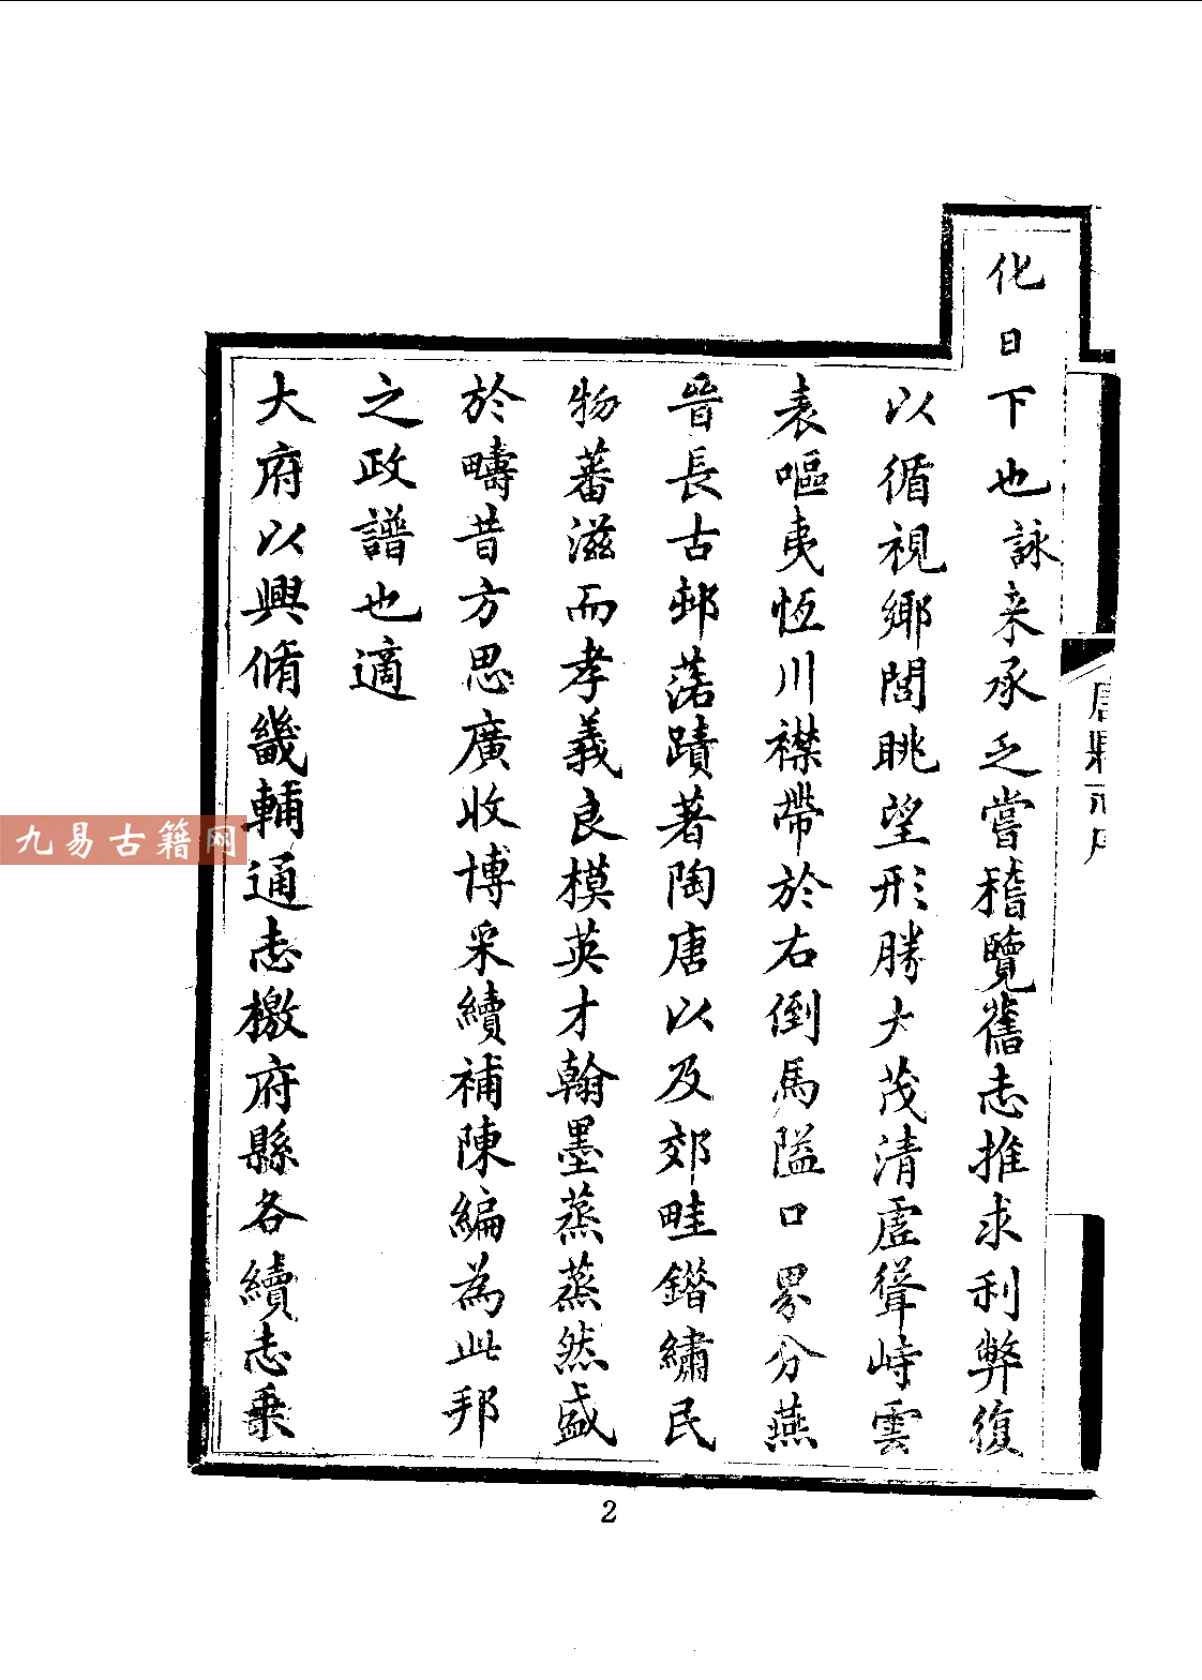 化日下也詠来承乏嘗稽覽舊志推求利弊復
以循視鄉閭眺望形勝大茂清虛聳峙雲
表嘔夷恆川襟帶於右倒馬隘口界分燕
晉長古邨落蹟著陶唐以及郊畦錯繡民
物蕃滋而孝義良模英才翰墨蒸蒸然盛
於疇昔方思廣收博采續補陳編為此邦
之政譜也適
大府以興脩畿輔通志檄府縣各續志乘
唐縣志序
2
九易古籍网